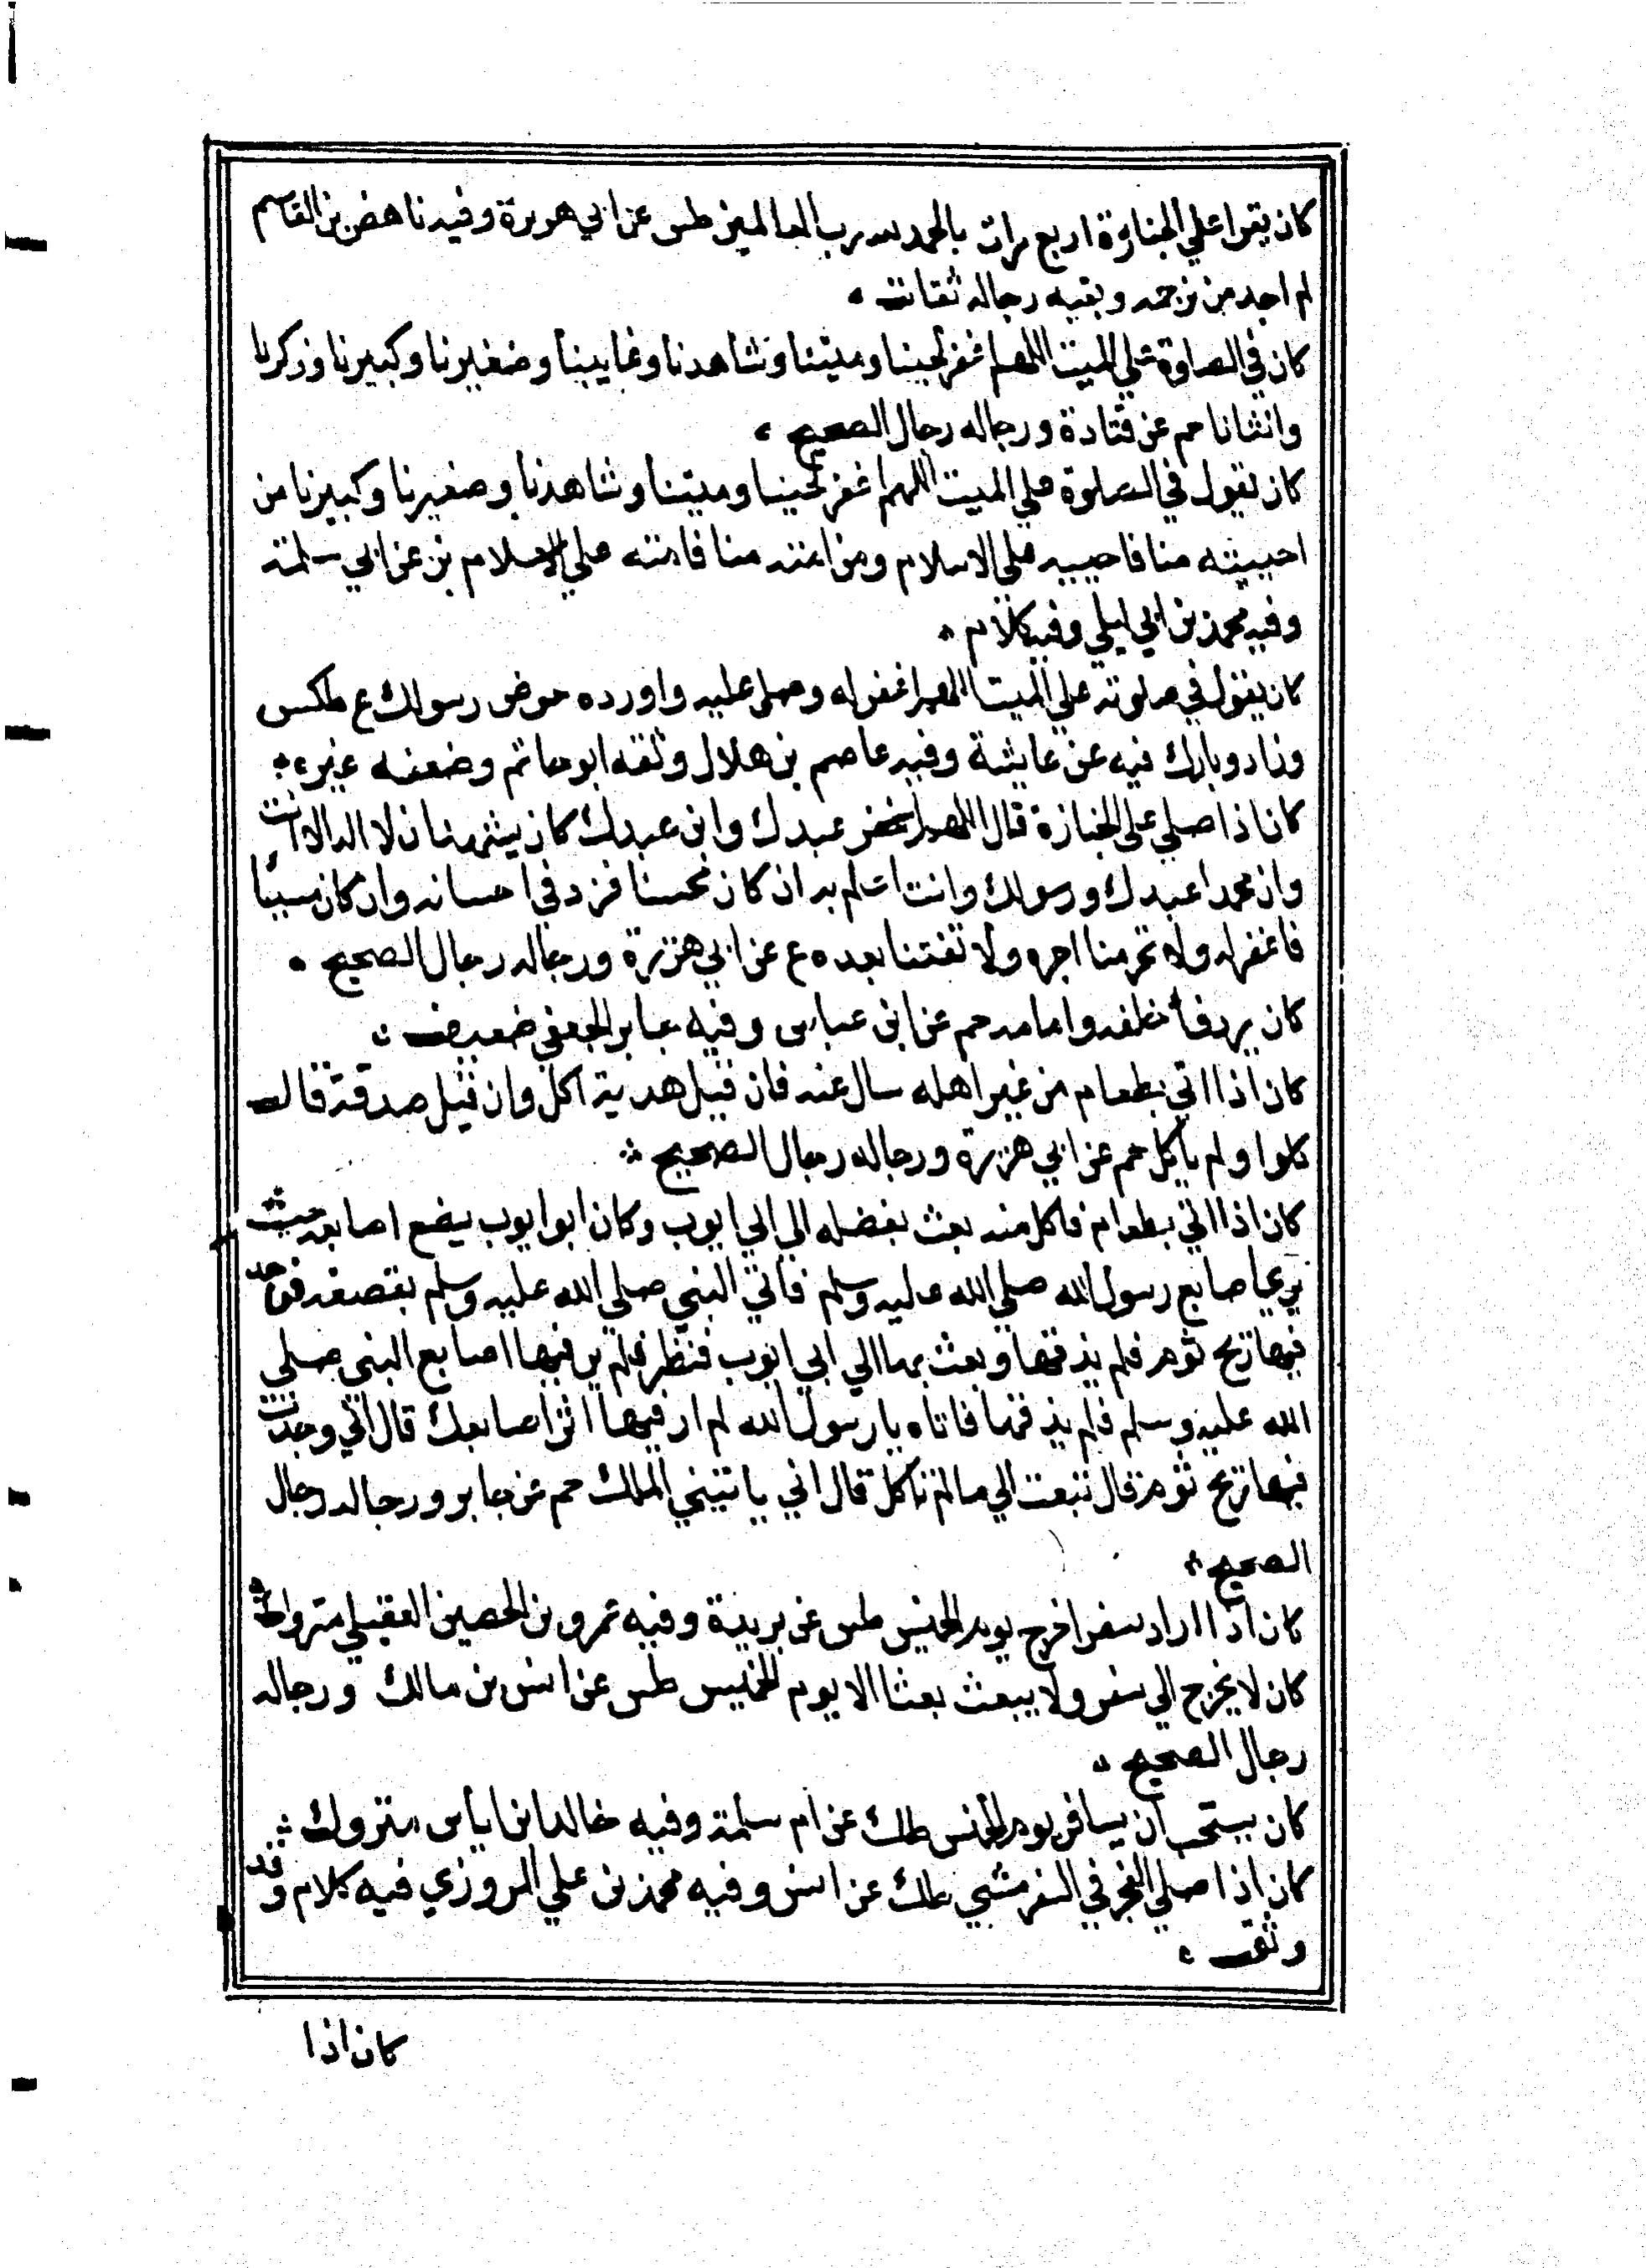 كان يقرا علي الجنازة اربع مرات بالحمد لله رب العالمين طس عن ابي هريرة وفيه ناهض بن القاسم
لم اجد من ترجمه وبقيه رجاله ثقات
كان في الصلوة علي الميت اللهم اغفر لحينا وميتنا وشاهدنا وغايبنا وصغيرنا وكبيرنا وذكرنا
وانثانا حم عن قتادة ورجاله رجال الصحيح
كان يقول في الصلوة علي الميت اللهم اغفر لحينا وميتنا وشاهدنا وصغيرنا وكبيرنا من
احييته منا فاحييه علي الاسلام ومن امته منا فامته علي الاسلام بن عن ابي سلمة
وفيه محمد بن ابي ليلي وفيه كلام
كان يقول في صلوته علي الميت اللهم اغفر له وصلي عليه واورده حوض رسولك ع طكس
وزاد وبارك فيه عن عايشة وفيه عاصم بن هلال وثقه ابو حاتم وضعفه غيره
كان اذا صلي علي الجنازة قال اللهم عبدك وابن عبدك كان يشهد ان لا اله الا انت
وان محمدا عبدك ورسولك وانت اعلم به ان كان محسنا فزد في احسانه وان كان مسيئا
فاغفر له ولا تحرمنا اجره ولا تفتنا بعده ع عن ابي هريرة ورجاله رجال الصحيح
كان يردف خلفه وامامه حم عن ابن عباس وفيه جابر الجعفي ضعيف
كان اذا اتي بطعام من غير اهله سال عنه فان قيل هدية اكل وان قيل صدقة قال
كلوا ولم ياكل حم عن ابي هريرة ورجاله رجال الصحيح
كان اذا اتي بطعام فاكل منه بعث بفضله الي ابي ايوب وكان ابو ايوب يضع اصابعه حيث
يري اصابع رسول الله صلي الله عليه وسلم فاتي النبي صلي الله عليه وسلم بقصعه فوجد
فيها ريح ثوم فلم يذقها وبعث بها الي ابي ايوب فنظر فلم ير فيها اصابع النبي صلي
الله عليه وسلم فلم يذقها فاتاه يا رسول الله لم ار فيها اثر اصابعك قال اني وجدت
فيها ريح ثوم قال تبعث الي ما لم تاكل قال اني ياتيني الملك حم عن جابر ورجاله رجال
الصحيح
كان اذا اراد سفرا خرج يوم الخميس طس عن بريدة وفيه عمرو بن الحصين العقيلي متروك
كان لا يخرج الي سفر ولا يبعث بعثا الا يوم الخميس طس عن انس بن مالك ورجاله
رجال الصحيح
كان يستحب ان يسافر يوم الخميس طك عن ام سلمة وفيه خالد ابن اياس متروك
كان اذا صلي الفجر في السفر مشي طك عن انس وفيه محمد بن علي المروزي فيه كلام وقد
وثق
كان اذا